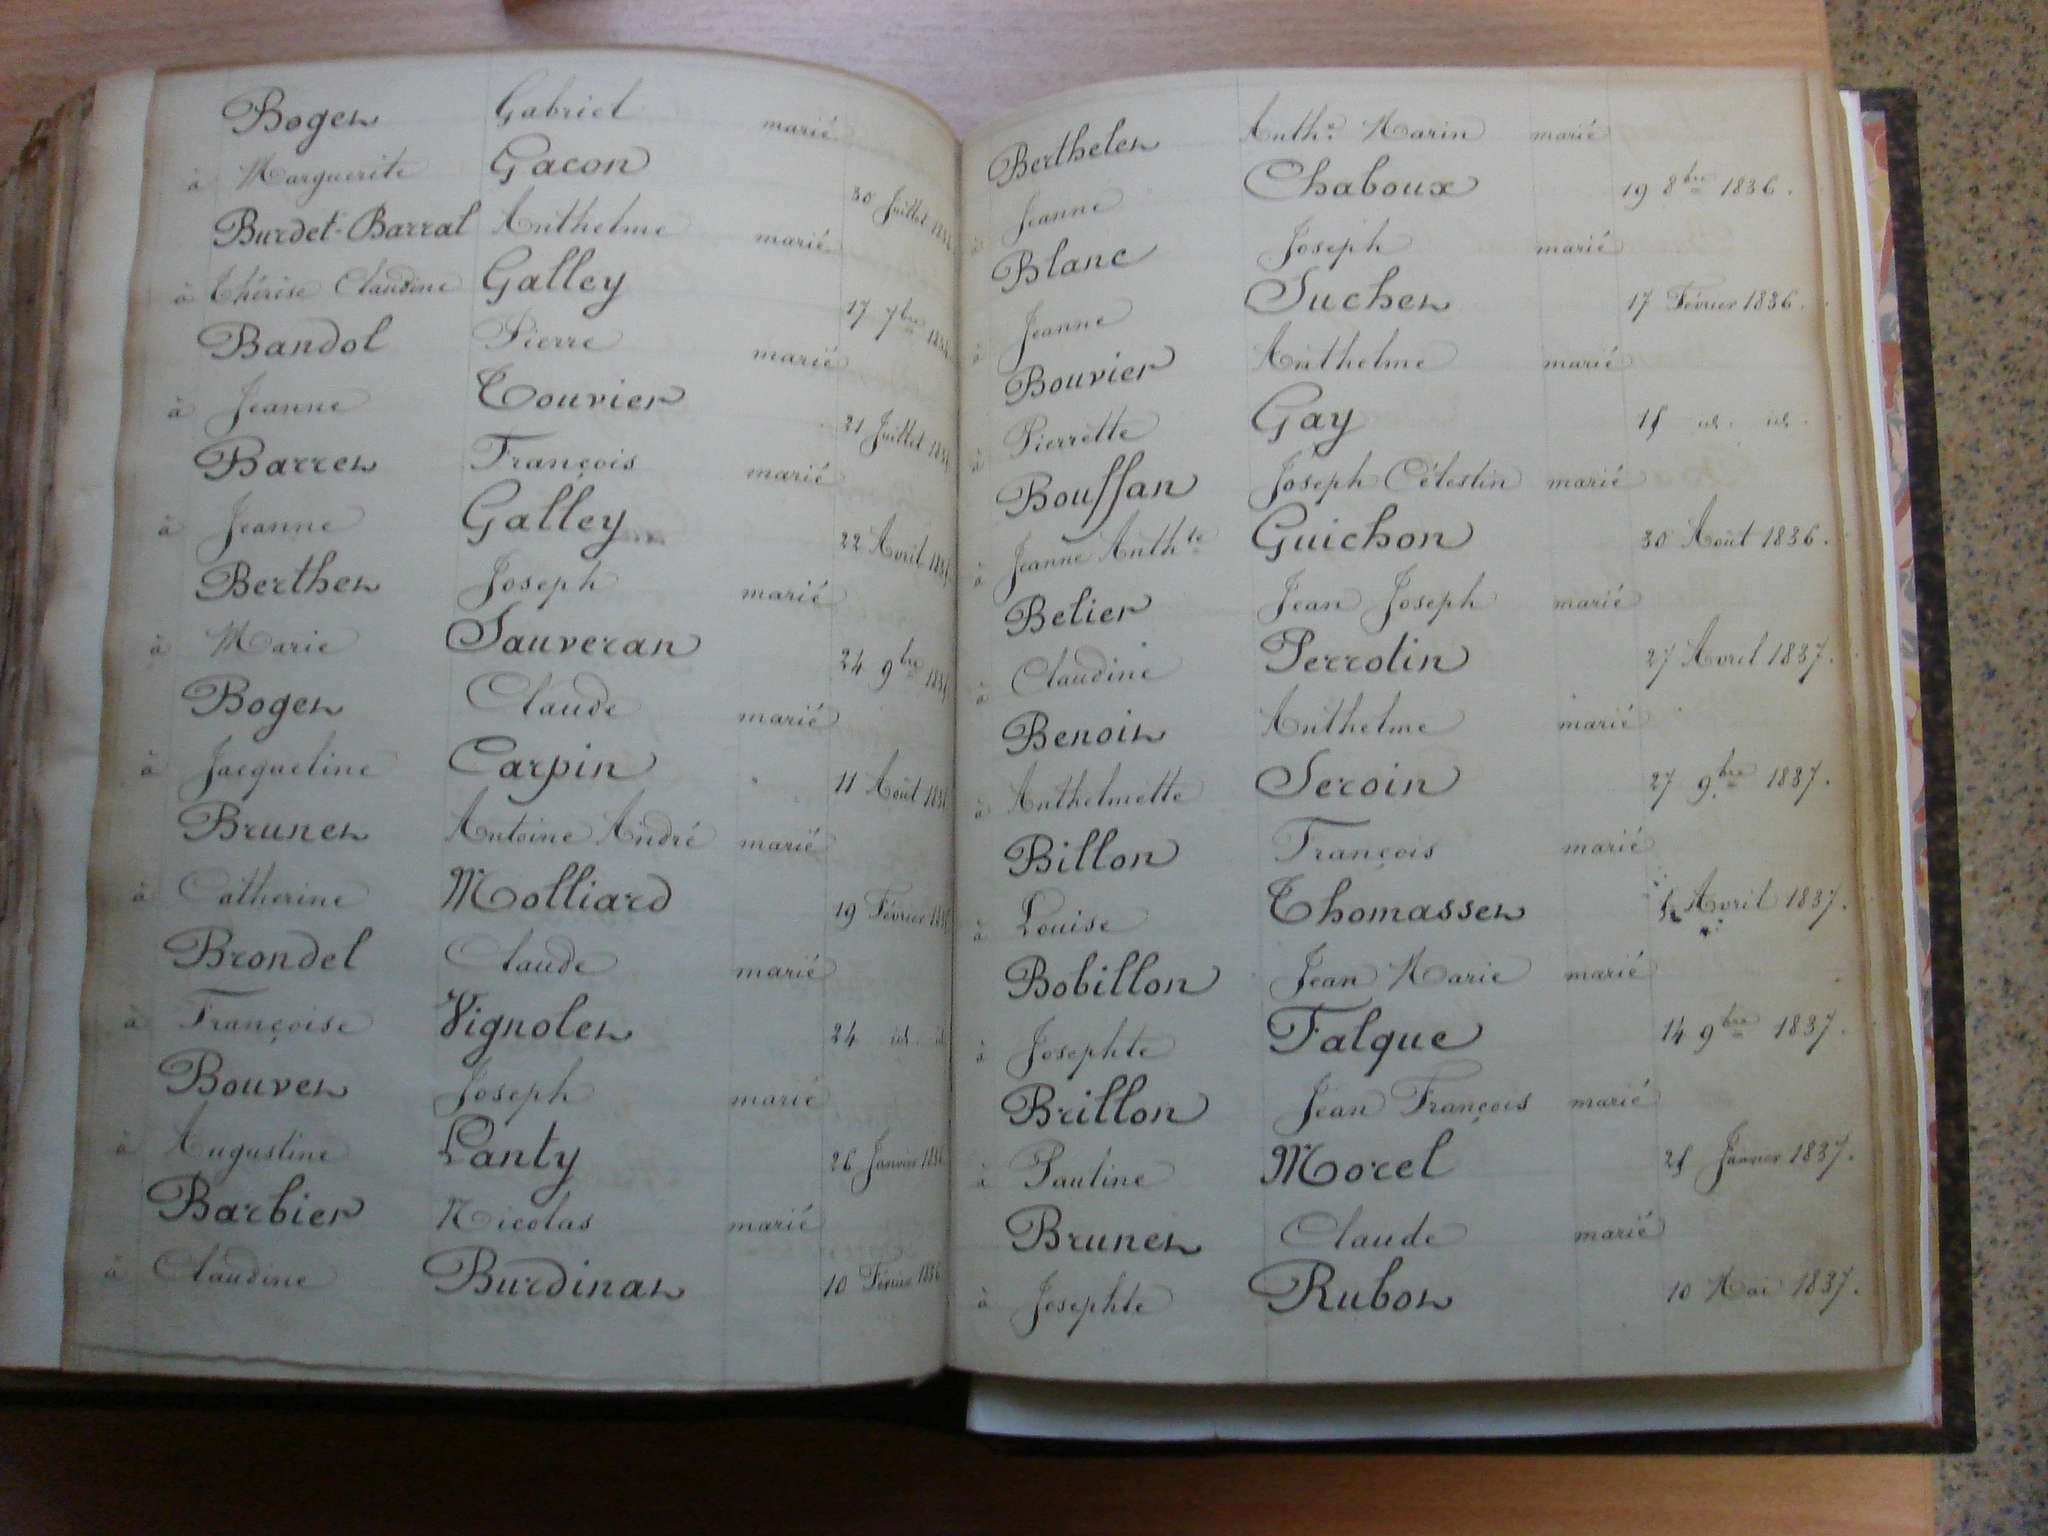 Boget Gabriel marié
à Marguerite Gacon 30 Juillet
Burdet-Barral Anthelme marié
à Thérèse Claudine Galley 17 7bre
Bandol Pierre marié
à Jeanne Touvier 21 Juillet
Barret François marié
à Jeanne Galley 22 Avril
Berthet Joseph marié
à Marie Sauveran 24 9bre
Boget Claude marié
à Jacqueline Carpin 11 Août
Brunet Antoine André marié
à Catherine Molliard 19 Février
Brondel Claude marié
à Françoise Vignolet 24 id. id
Bouvet Joseph marié
à Augustine Lanty 26 Janvier 1836
Barbier Nicolas marié
à Claudine Burdinat 10 Février 1836
Berthelet Anthe. Marin marié
à Jeanne Chaboux 19 8bre 1836.
Blanc Joseph marié
à Jeanne Suchet 17 Février 1836.
Bouvier Anthelme marié
à Pierrette Gay 15 id. id.
Bouffan Joseph Célestin marié
à Jeanne Anthte Guichon 30 Août 1836.
Belier Jean Joseph marié
à Claudine Perrotin 27 Avril 1837.
Benoit Anthelme marié
à Anthelmette Seroin 27 9bre 1837.
Billon François marié
à Louise Thomasset Avril 1837.
Bobillon Jean Marie marié
à Josephte Falque 14 9bre 1837.
Brillon Jean François marié
à Pauline Morel 25 Janvier 1837.
Brunet Claude marié
à Josephte Rubot 10 Mai 1837.